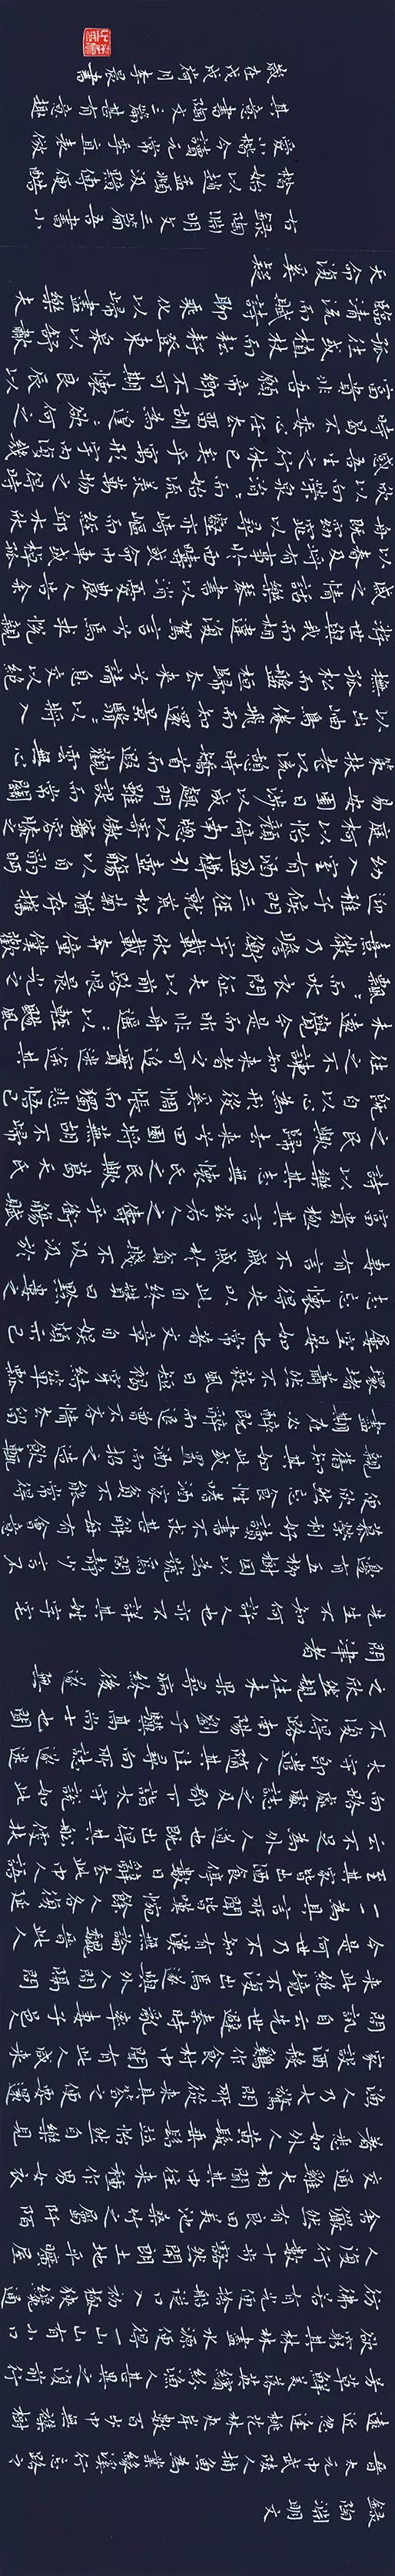 錄陶淵明文
晉太元中武陵人捕魚為業緣溪行忘路之
遠近忽逢桃花林夾岸數百步中無雜樹
芳草鮮美落英繽紛漁人甚異之復前行
欲窮其林林盡水源便得一山山有小口
彷彿若有光便捨船從口入初極狹纔通
人復行數十步豁然開朗土地平曠屋
舍儼然有良田美池桑竹之屬阡陌
交通雞犬相聞其中往來種作男女衣
著悉如外人黃髮垂髫並怡然自樂見
漁人乃大驚問所從來具答之便要還
家設酒殺雞作食村中聞有此人咸來
問訊自云先世避秦時亂率妻子邑
來此絕境不復出焉遂與外人間隔問
今是何世乃不知有漢無論魏晉此人
一為具言所聞皆嘆惋餘人各復延
至其家皆出酒食停數日辭去此中人語
云不足為外人道也既出得其船便扶
向路處誌之及郡下詣太守說如此
太守即遣人隨其往尋向所誌遂迷
不復得路南陽劉子驥高尚士也聞
之欣然親往未果尋病終後遂無
問津者
先生不知何許人也亦不詳其姓字宅
邊有五柳樹因以為號焉閑靜少言不
慕榮利好讀書不求甚解每有會意
便欣然忘食性嗜酒家貧不能常得
親舊知其如此或置酒而招之造飲輒
盡期在必醉既醉而退曾不吝情去留
環堵蕭然不蔽風日短褐穿結簞瓢
屢空晏如也常著文章自娛頗示己
志忘懷得失以此自終贊曰黔婁之
妻有言不戚於貧賤不汲汲於
富貴極其言茲若人之儔乎銜觴賦
詩以樂其志無懷氏之民歟葛天氏
之民歟歸去來兮田園將蕪胡不歸
既自以心為形役奚惆悵而獨悲悟已
往之不諫知來者之可追實迷途其
未遠覺今是而昨非舟遙〻以輕颺風
飄〻而吹衣問征夫以前路恨晨光之
熹微乃瞻衡宇載欣載奔僮僕歡
迎稚子候門三徑就荒松菊猶存攜
幼入室有酒盈樽引壺觴以自酌眄
庭柯以怡顏倚南窗以寄傲審容膝之
易安園日涉以成趣門雖設而常關
策扶老以流憩時矯首而遐觀雲無心
以出岫鳥倦飛而知還景翳〻以將入
撫孤松而盤桓歸去來兮請息交以絕
游世與我而相違復駕言兮焉求悅親
戚之情話樂琴書以消憂農人告余
以春及將有事於西疇或命巾車或棹孤
舟既窈窕以尋壑亦崎嶇而經邱木欣
欣以向榮泉涓〻而始流羨萬物之得時
感吾生之行休已矣乎寓形宇內復幾
時曷不委心任去留胡為遑〻欲何之
富貴非吾願帝鄉不可期懷良辰以
孤往或植杖而耘耔登東皋以舒嘯
臨清流而賦詩聊乘化以歸盡樂夫
天命復奚疑
右錄陶淵明文三篇吾書小
楷始以趙孟頫汲黯傳便酷
愛小楷今讀元常季直表倣
其意書陶文三篇甚有意趣
歲在戊戌荷月李晨書